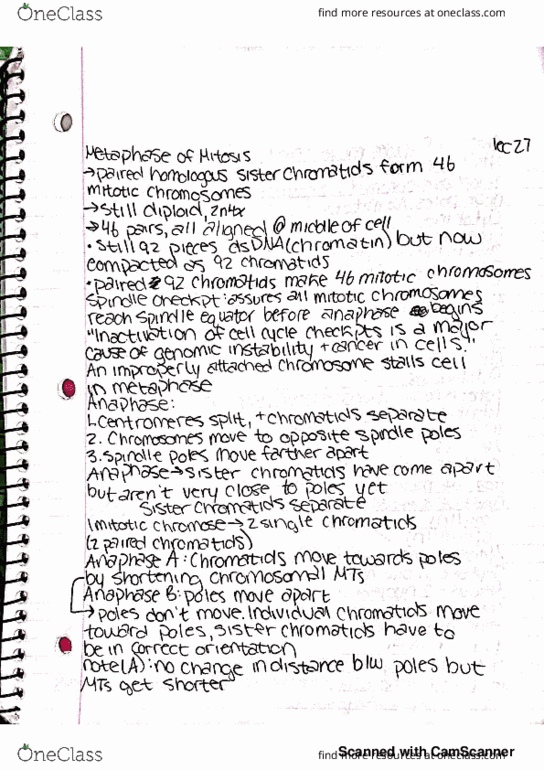 OneClass
find more resources at oneclass.com
lec 27
Metaphase of Mitosis
→paired homologous sister chromatids form 46
mitotic chromosomes
→still diploid, 2n4x
→46 pairs, all aligned @ middle of cell
•still 92 pieces dsDNA(chromatin) but now
compacted as 92 chromatids
•paired 92 chromatids make 46 mitotic chromosomes
spindle checkpt: assures all mitotic chromosomes
reach spindle equator before anaphase begins
"Inactivation of cell cycle checkpts is a major
cause of genomic instability + cancer in cells."
An improperly attached chromosome stalls cell
in metaphase
Anaphase:
1. Centromeres split, + chromatids separate
2. Chromosomes move to opposite spindle poles
3. Spindle poles move farther apart
Anaphase→sister chromatids have come apart
but aren't very close to poles yet
Sister chromatids separate
1 mitotic chromose→2 single chromatids
(2 paired chromatids)
Anaphase A: Chromatids move towards poles
by shortening chromosomal MTs
Anaphase B: poles move apart
→poles don't move. Individual chromatids move
toward poles, sister chromatids have to
be in correct orientation
note(A): no change in distance b/w poles but
MTs get shorter
OneClass
find more resources at oneclass.com
Scanned with CamScanner